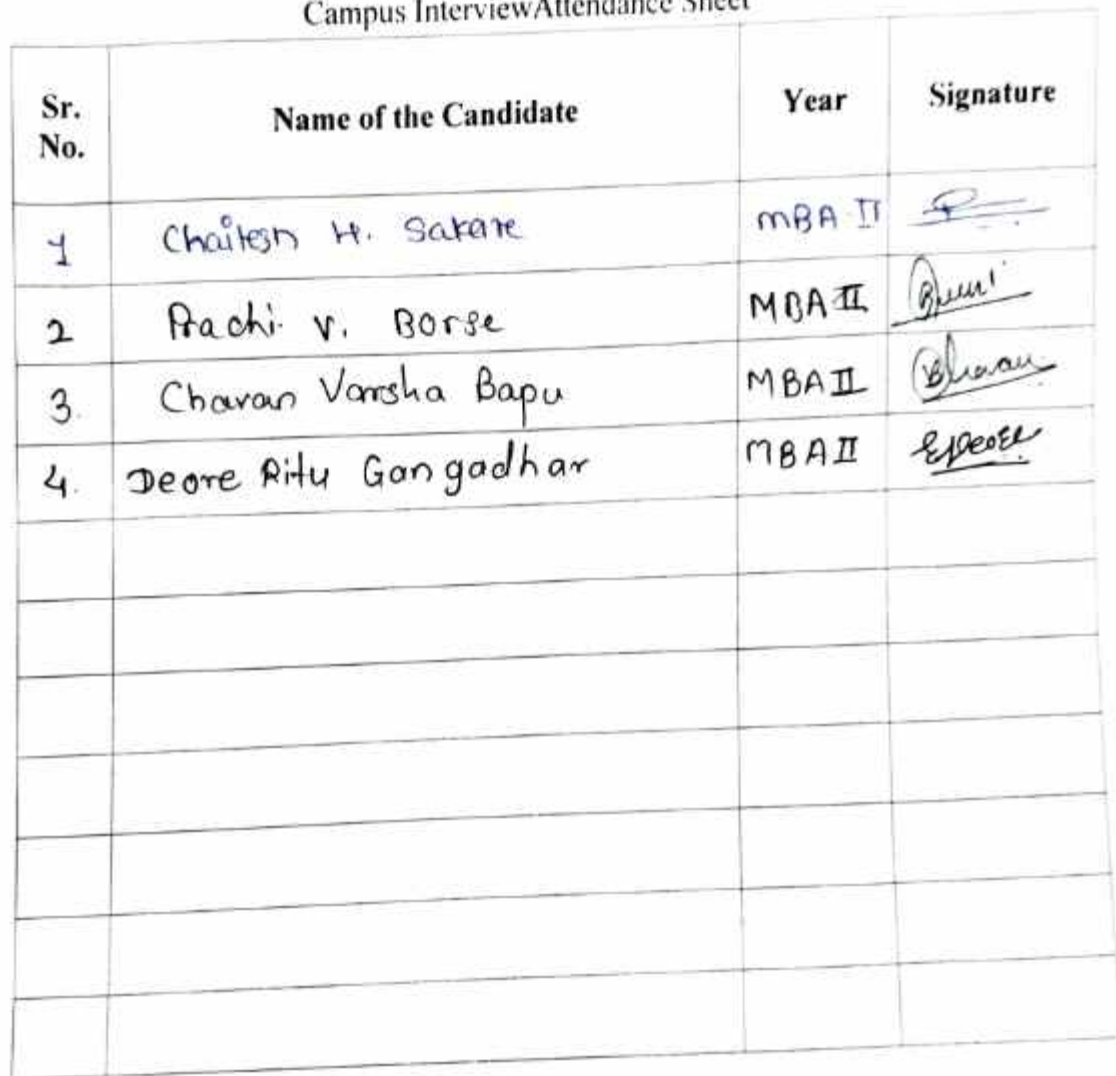 Campus InterviewAttendance Sheet
Sr. No. Name of the Candidate Year Signature
1 Chaitesh H. Sakare MBA II
2 Prachi. V. Borse MBA II
3. Chavan Varsha Bapu MBA II
4. Deore Ritu Gangadhar MBA II